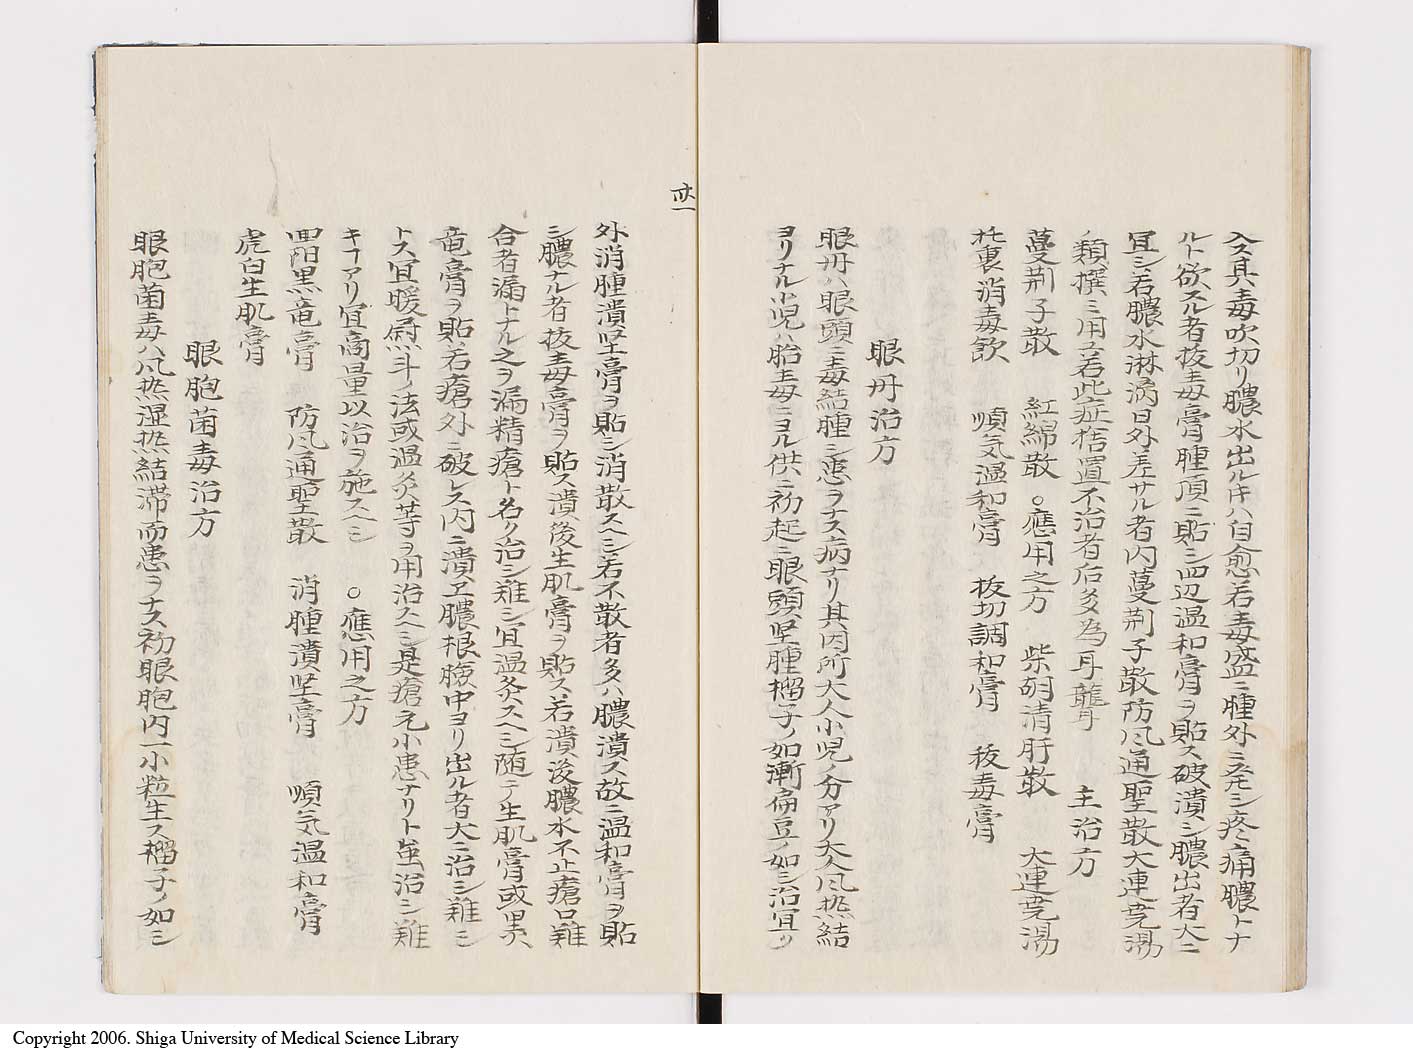 入ス其毒吹切リ膿水出ル片ハ自愈若毒盛ニ腫外ミ発シ疼痛膿トナ
ルト欲スル者抜毒膏腫頂ニ貼シ四辺温和膏ヲ貼ス破潰シ膿出者大ニ
宜シ若膿水淋滴日外差サル者内蔓荊子散防风通聖散大連堯湯
ノ類撰ミ用ユ若此症捨置不治者后多為耳聾 主治方
蔓荊子散 紅綿散 ○應用之方 柴胡清肝散 大連堯湯
托裏消毒飲 順気温和膏 抜切調和膏 抜毒膏
眼丹治方
眼丹ハ眼頭ニ毒結腫シ患ヲナス病ナリ其因所大人小児ノ分アリ大人风热結
ヨリナル小児ハ胎毒ニヨル供ニ初起ニ眼頭坚腫榴子ノ如漸扁豆ノ如シ治宜ク
丗一
外消腫潰坚膏ヲ貼シ消散スヘシ若不散者多ハ膿潰ス故ニ温和膏ヲ貼
シ膿ナル者抜毒膏ヲ貼ス潰後生肌膏ヲ貼ス若潰後膿水不止瘡口難
合者漏トナル之ヲ漏精瘡ト名ク治シ難シ宜温灸スヘシ随テ生肌膏或黒
竜膏ヲ貼若瘡外ニ破レス内ニ潰エ膿根臉中ヨリ出ル者大ニ治シ難シ
トス宜暖熨斗ノ法或温灸等ヲ用治スヘシ是瘡元小患ナリト虽治シ難
キヿアリ宜商量以治ヲ施スヘシ ○應用之方
回陽黒竜膏 防风通聖散 消腫潰坚膏 順気温和膏
虎白生肌膏
眼胞菌毒治方
眼胞菌毒ハ风热湿热結滞而患ヲナス初眼胞内一小粒生ス榴子ノ如シ
Copyright 2006. Shiga University of Medical Science Library